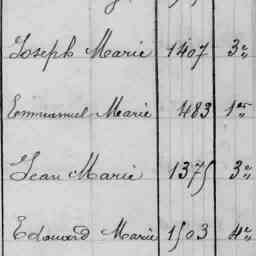 Joseph Marie 1407 3e
Emmanuel Marie 483 1er
Jean Marie 1375 3e
Edouard Marie 1503 4e